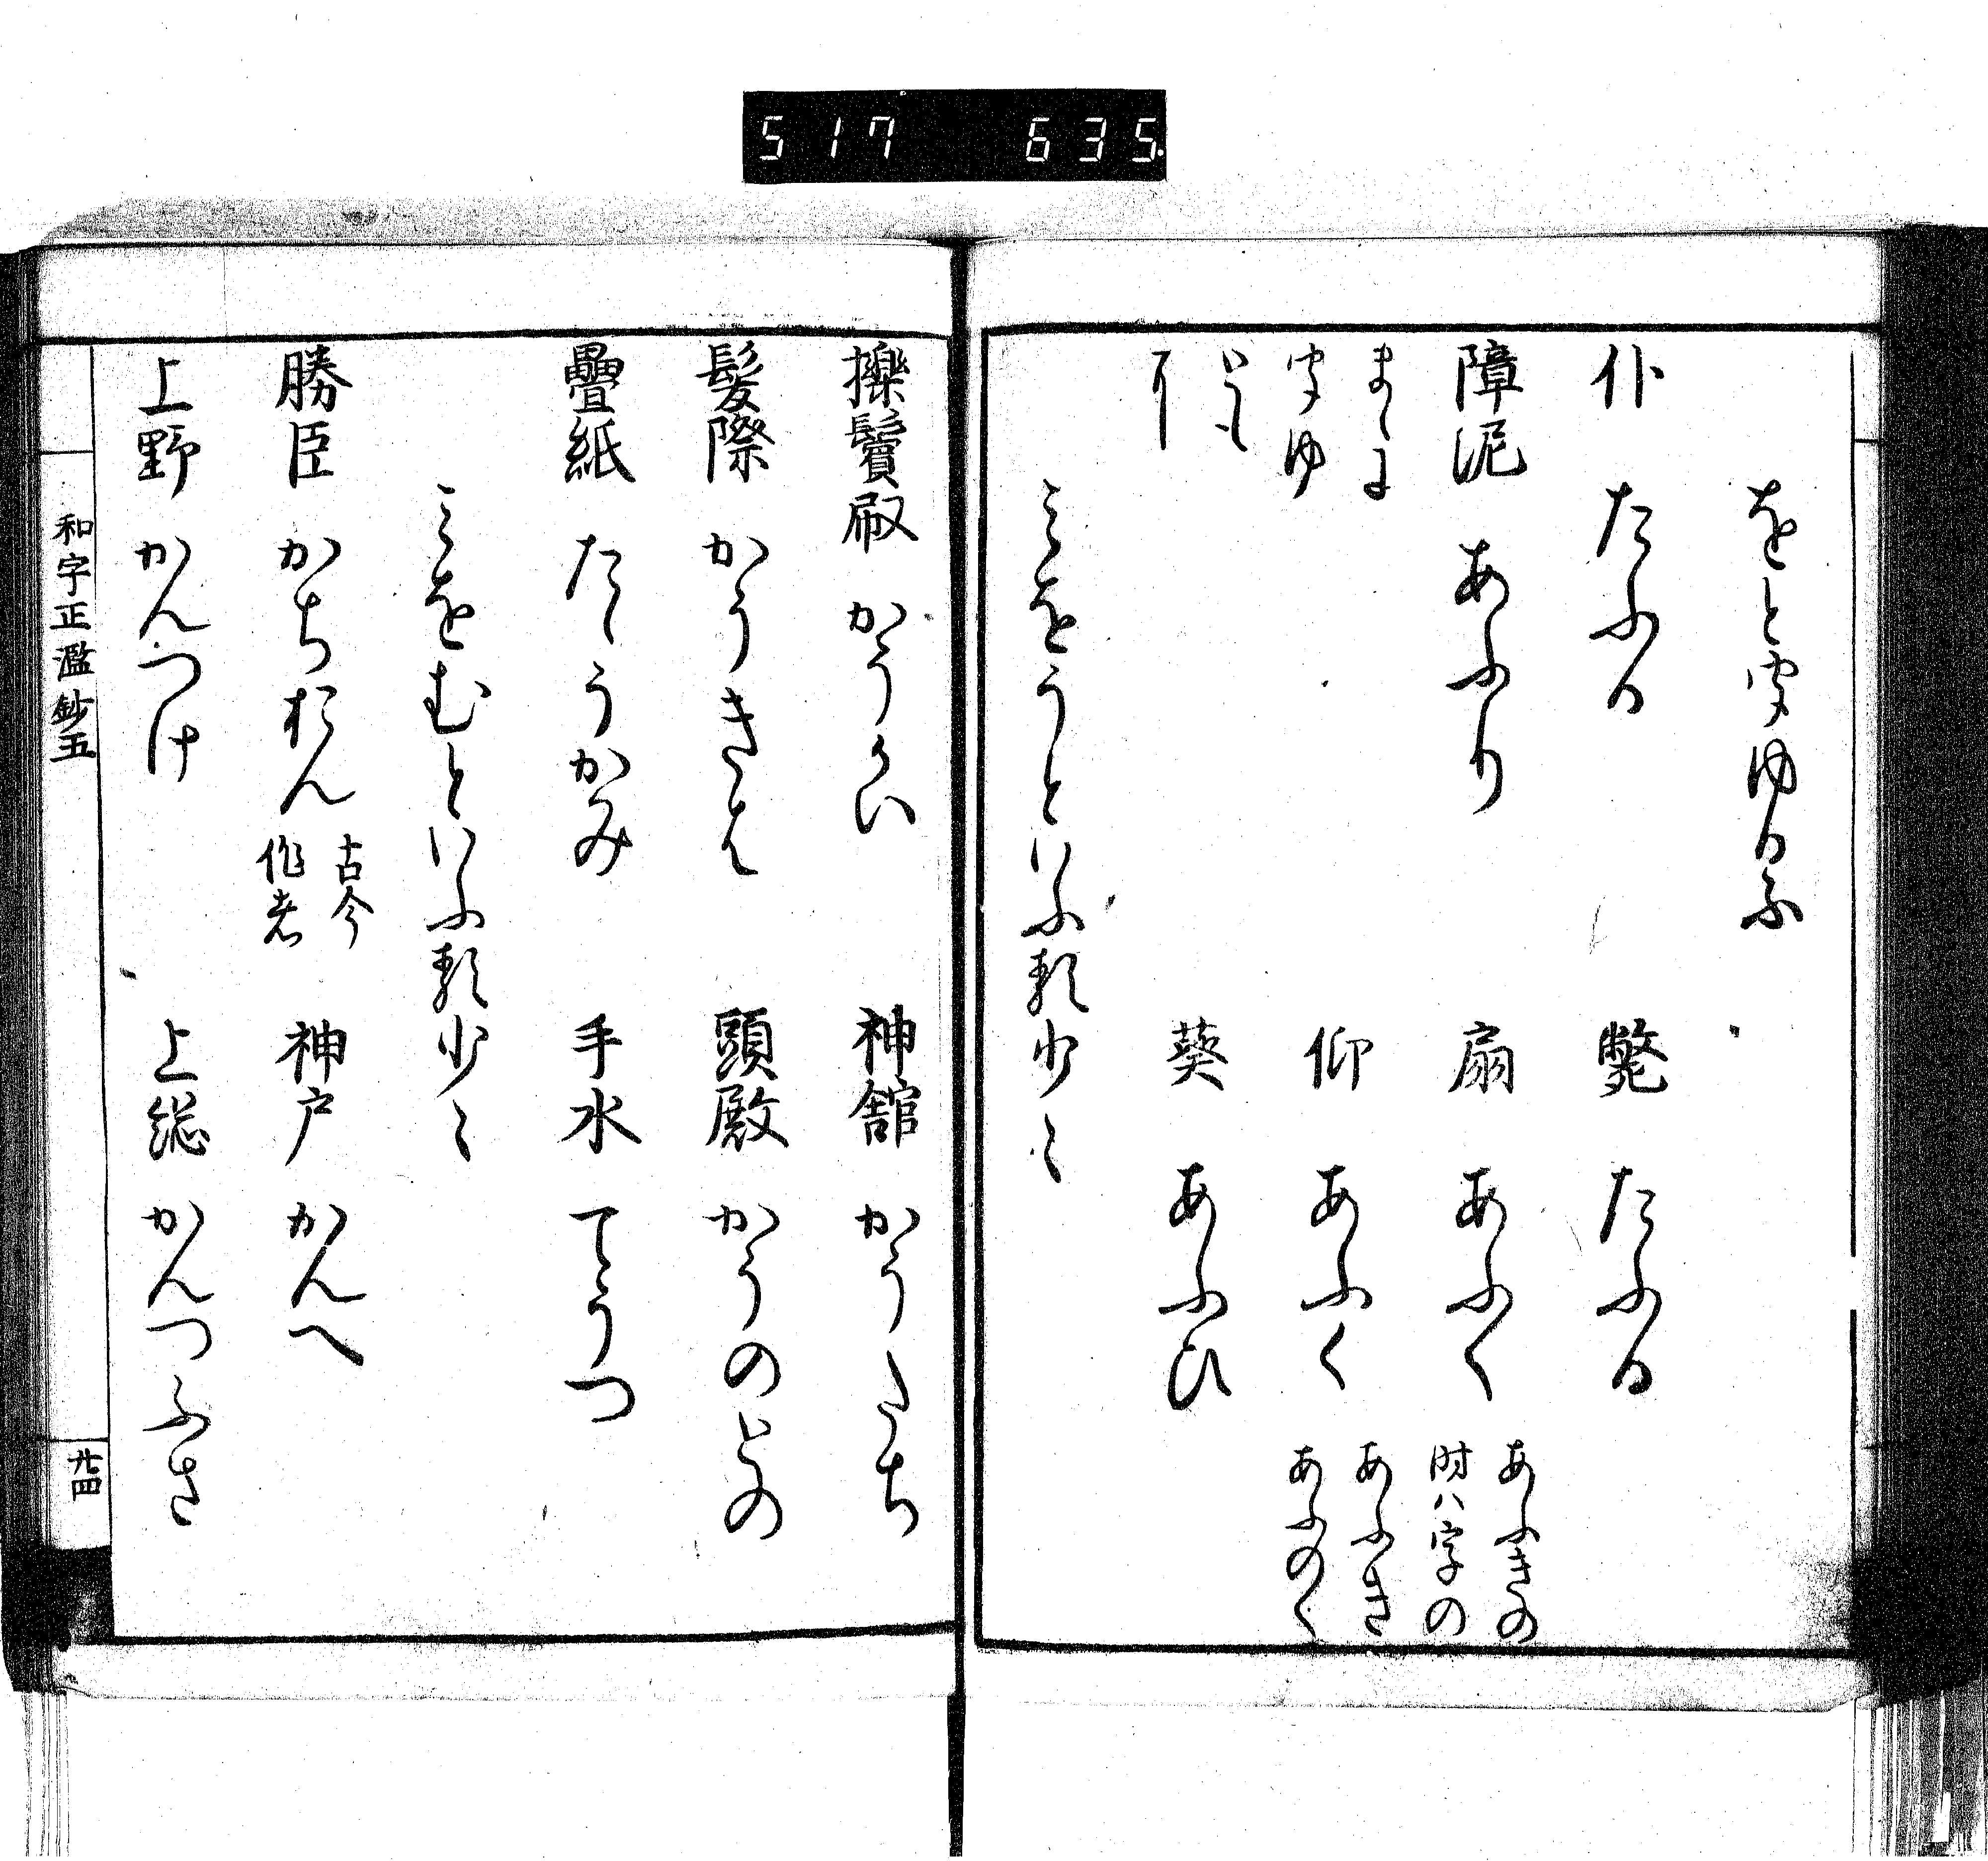 517 635
をと聞ゆるふ
仆 たふる
斃 たふる
障泥 あふり
扇 あふく あふきの
時ハ字の
まゝに
聞ゆ
仰 あふく あふき
あふのく
とも
葵 あふひ
みをうといふ類少々
掻鬢 かうかい
神舘 かうたち
髪際 かうきは
頭殿 かうのとの
疊紙 たゝうかみ
手水 てうつ
みをむといふ類少々
勝臣 かちおん 古今
作者
神戸 かんへ
上野 かんつけ
上総 かんつふさ
和字正濫鈔五
廿四